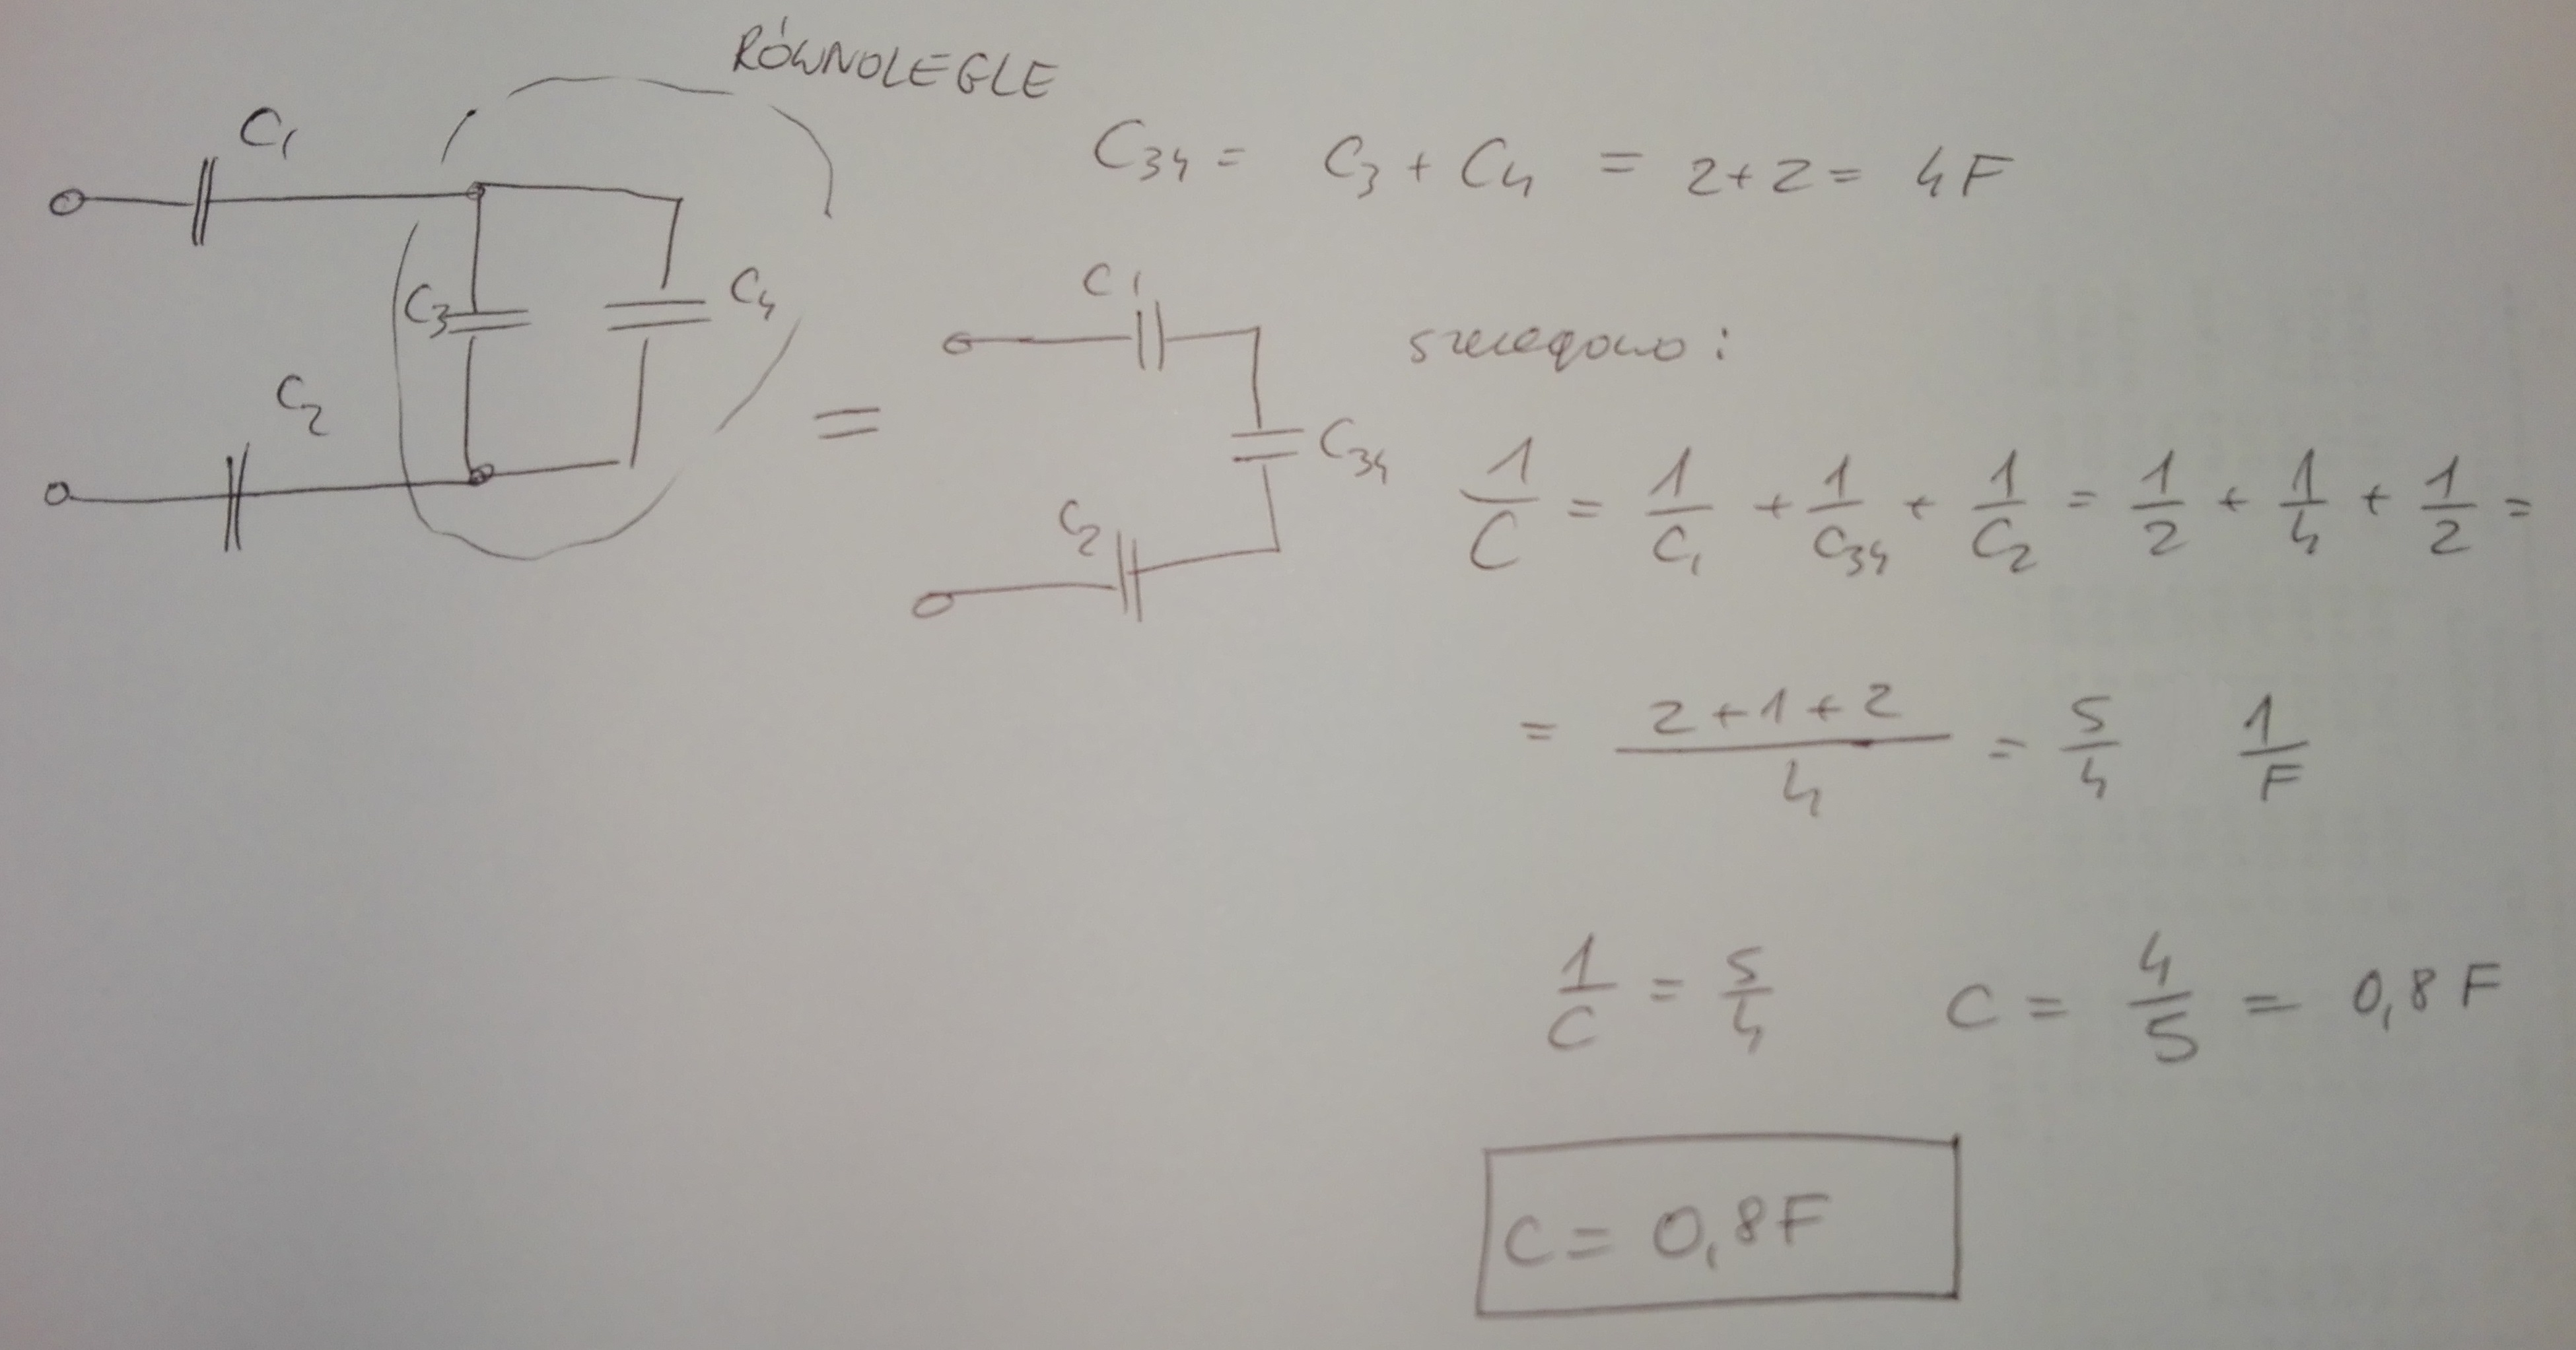 RÓWNOLEGLE
C₁
C₃₄ = C₃ + C₄ = 2+2 = 4F
C₃
C₄
C₂
=
C₁
C₃₄
C₂
szeregowo:
1/C = 1/C₁ + 1/C₃₄ + 1/C₂ = 1/2 + 1/4 + 1/2 =
= (2+1+2)/4 = 5/4 1/F
1/C = 5/4 C = 4/5 = 0,8 F
C = 0,8F